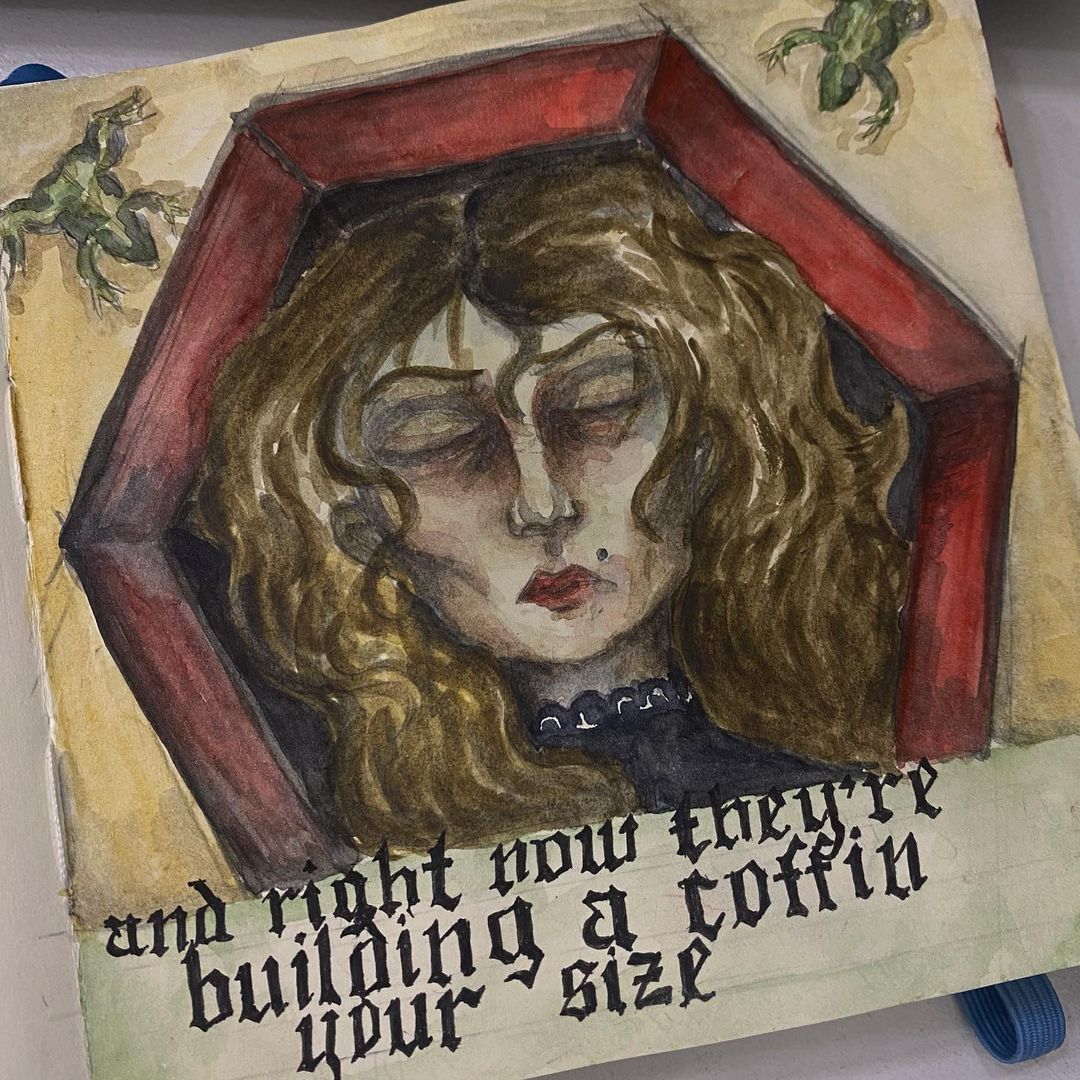 and right now they're
building a coffin
your size